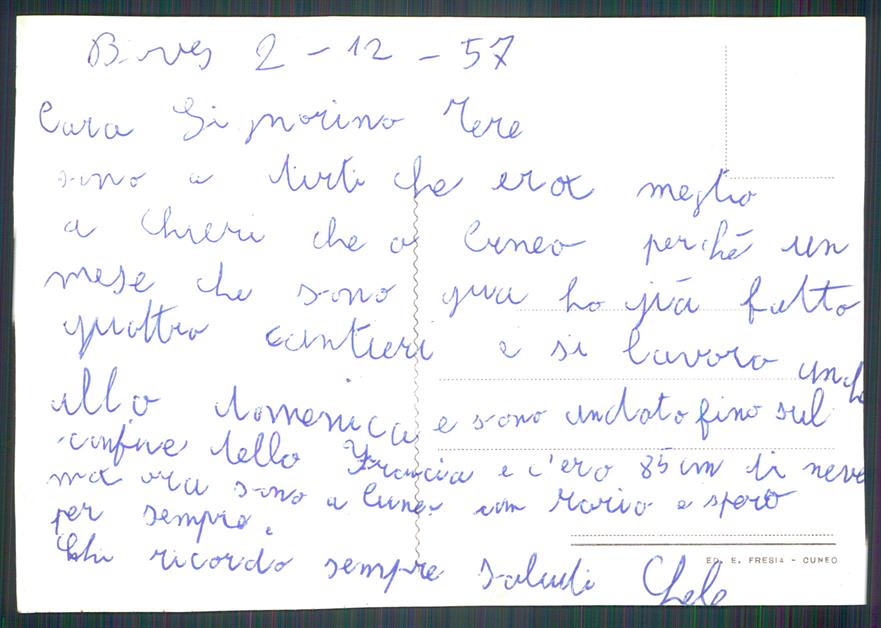 Boves 2-12-57
Cara Signorina Rere
sono a dirti che era meglio
a Chieri che a Cuneo perché un
mese che sono qua ho già fatto
quattro cantieri e si lavora anche
alla domenica e sono andato fino sul
confine della Francia e c'era 85 cm di neve
ma ora sono a Cuneo con Mario e spero
per sempre.
Chi ricorda sempre saluti
ED. E. FRESIA - CUNEO